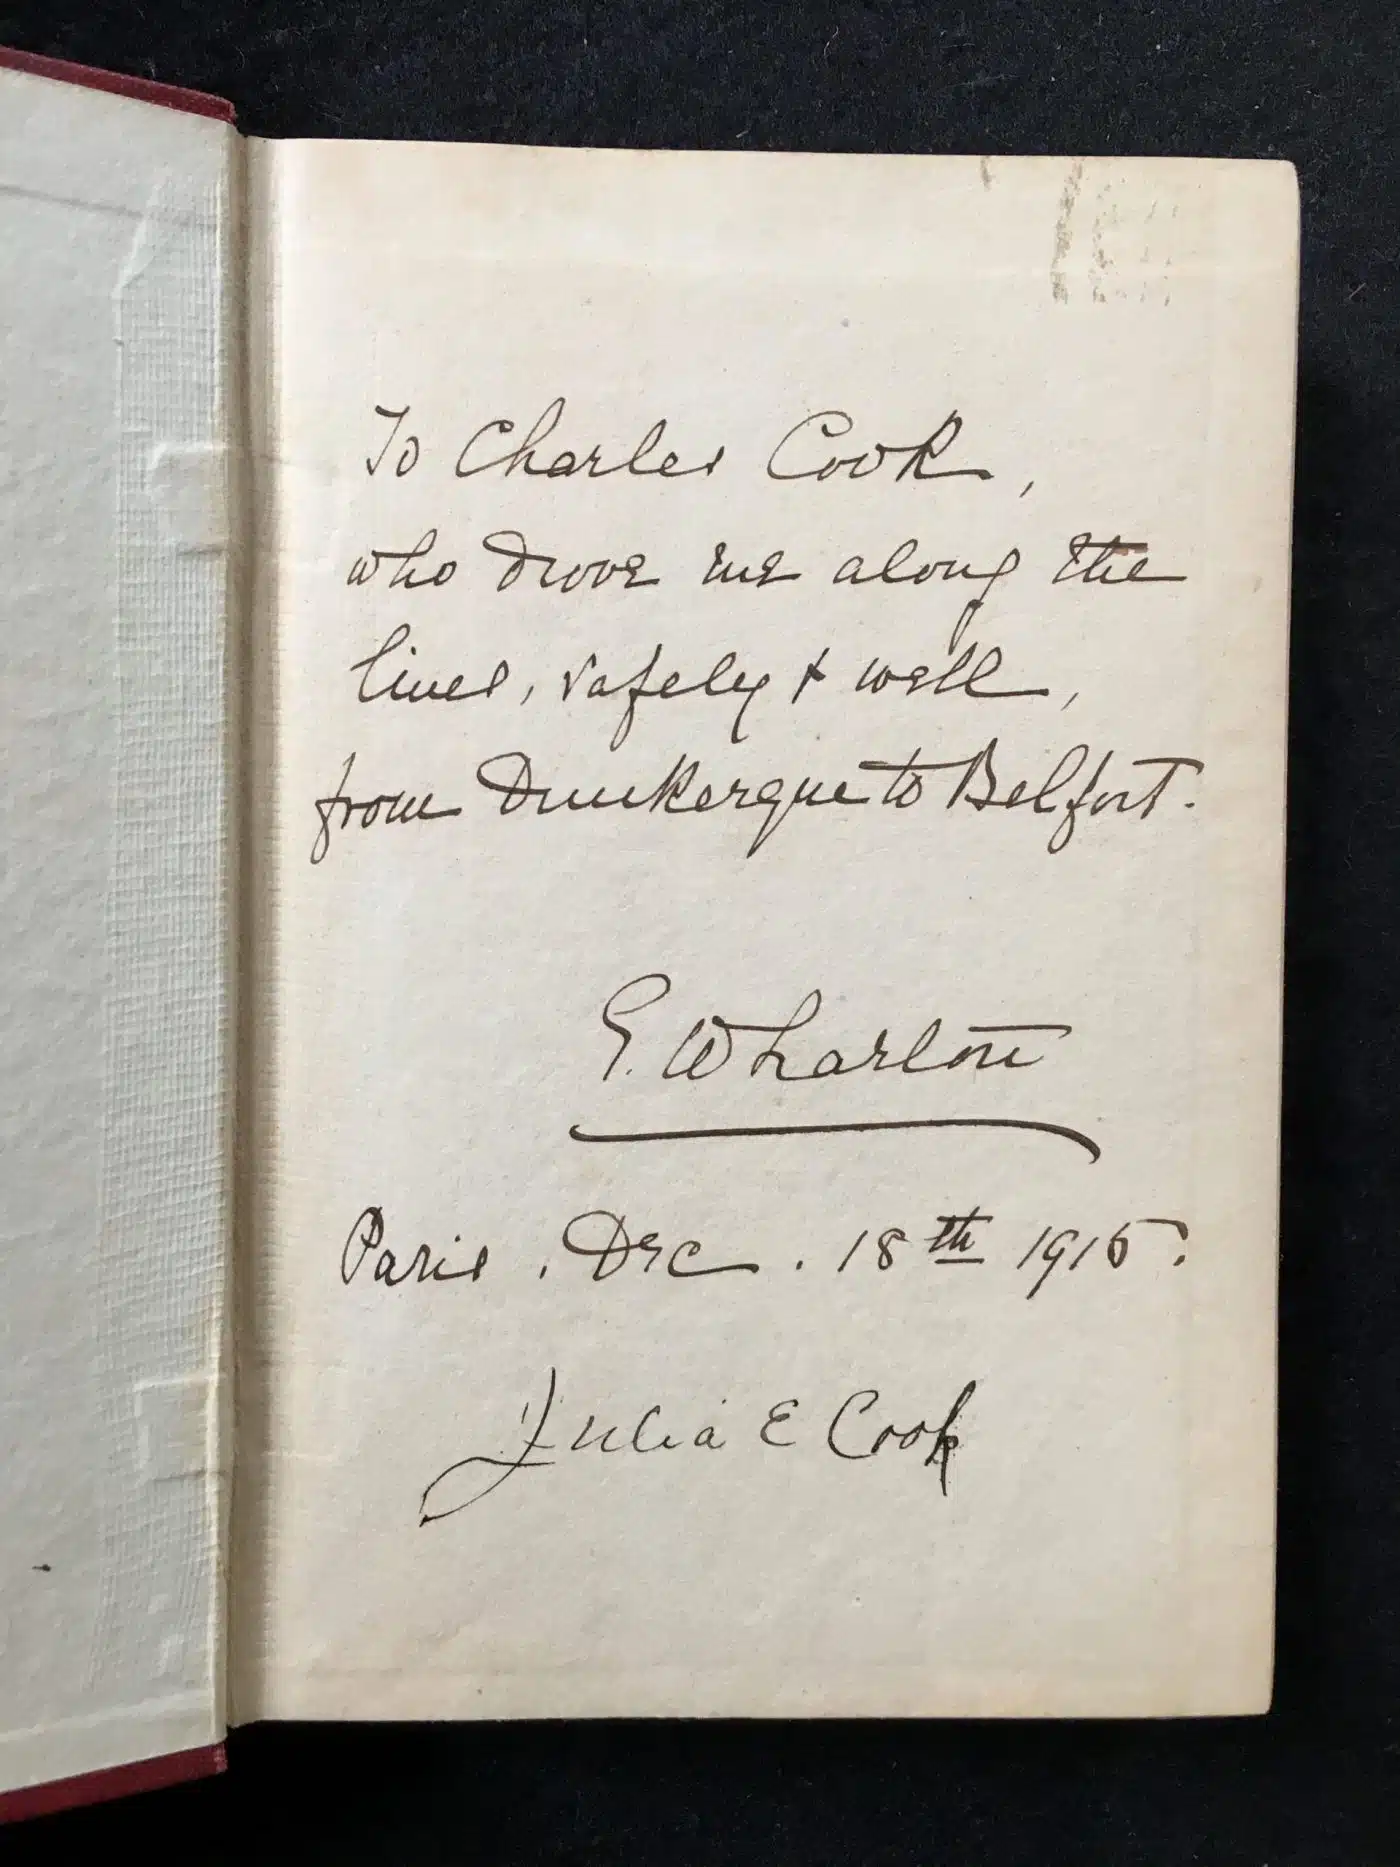 To Charles Cook,
who drove me along the
lines, safely & well,
from Dunkerque to Belfort.
E. Wharton
Paris. Dec. 18th 1915.
Julia E Cook